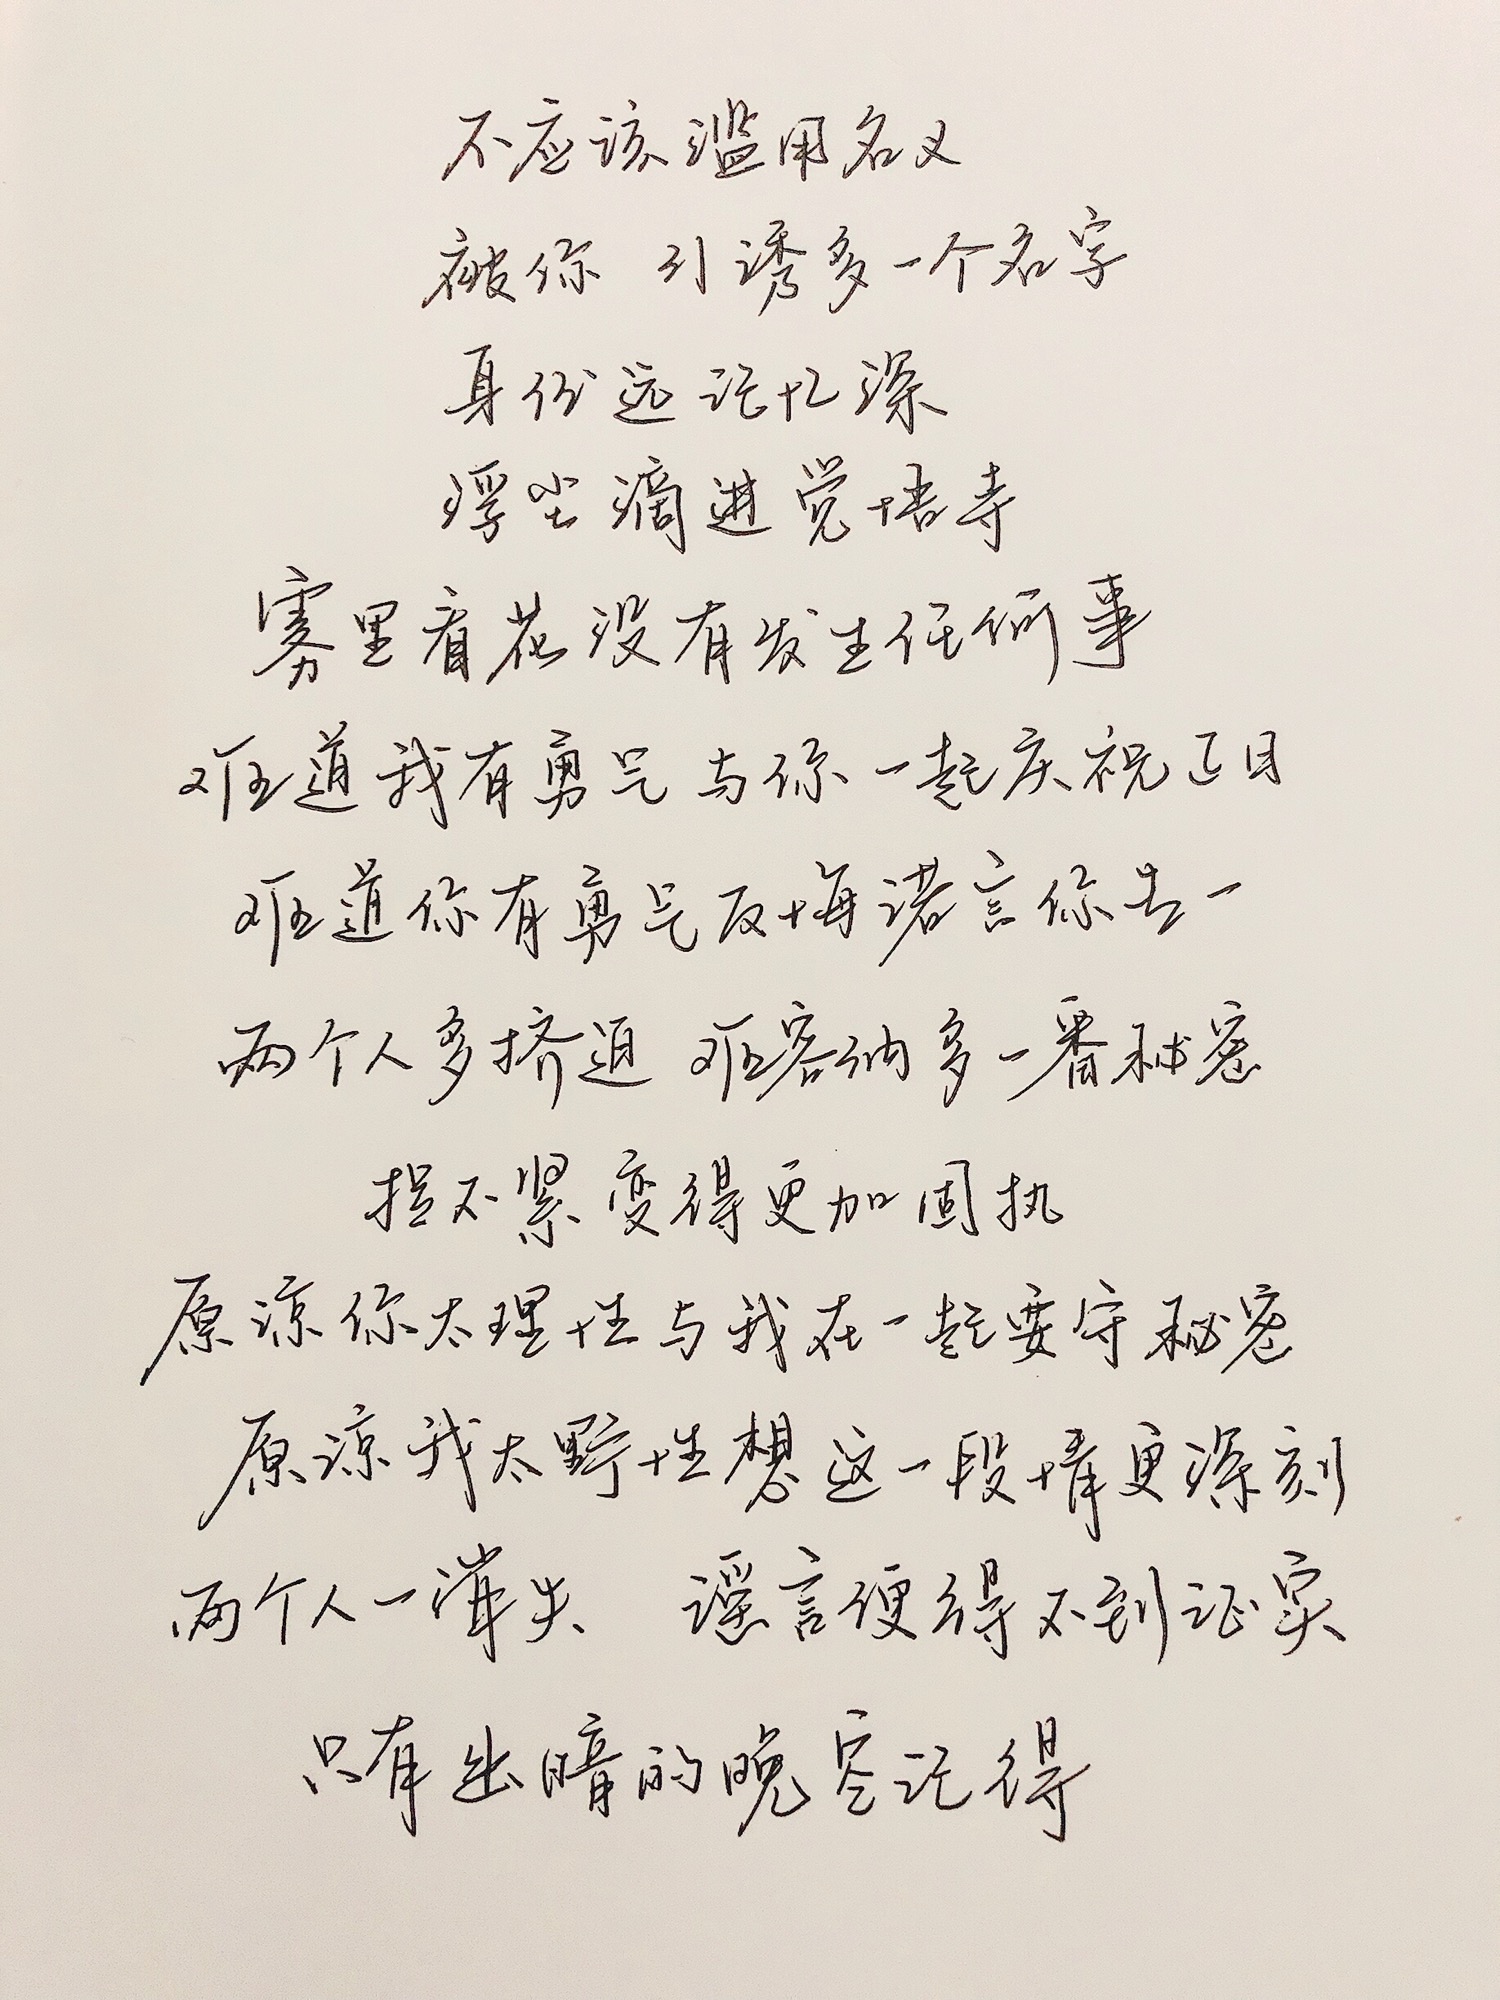 不应该滥用名义
被你 引诱多一个名字
身份远记忆深
浮尘滴进觉悟寺
雾里看花没有发生任何事
难道我有勇气与你一起庆祝正日
难道你有勇气反悔诺言你去一
两个人多挤迫 难容纳多一番秘密
捉不紧变得更加固执
原谅你太理性与我在一起要守秘密
原谅我太野性想这一段情更深刻
两个人一消失 谣言便得不到证实
只有幽暗的晚空记得